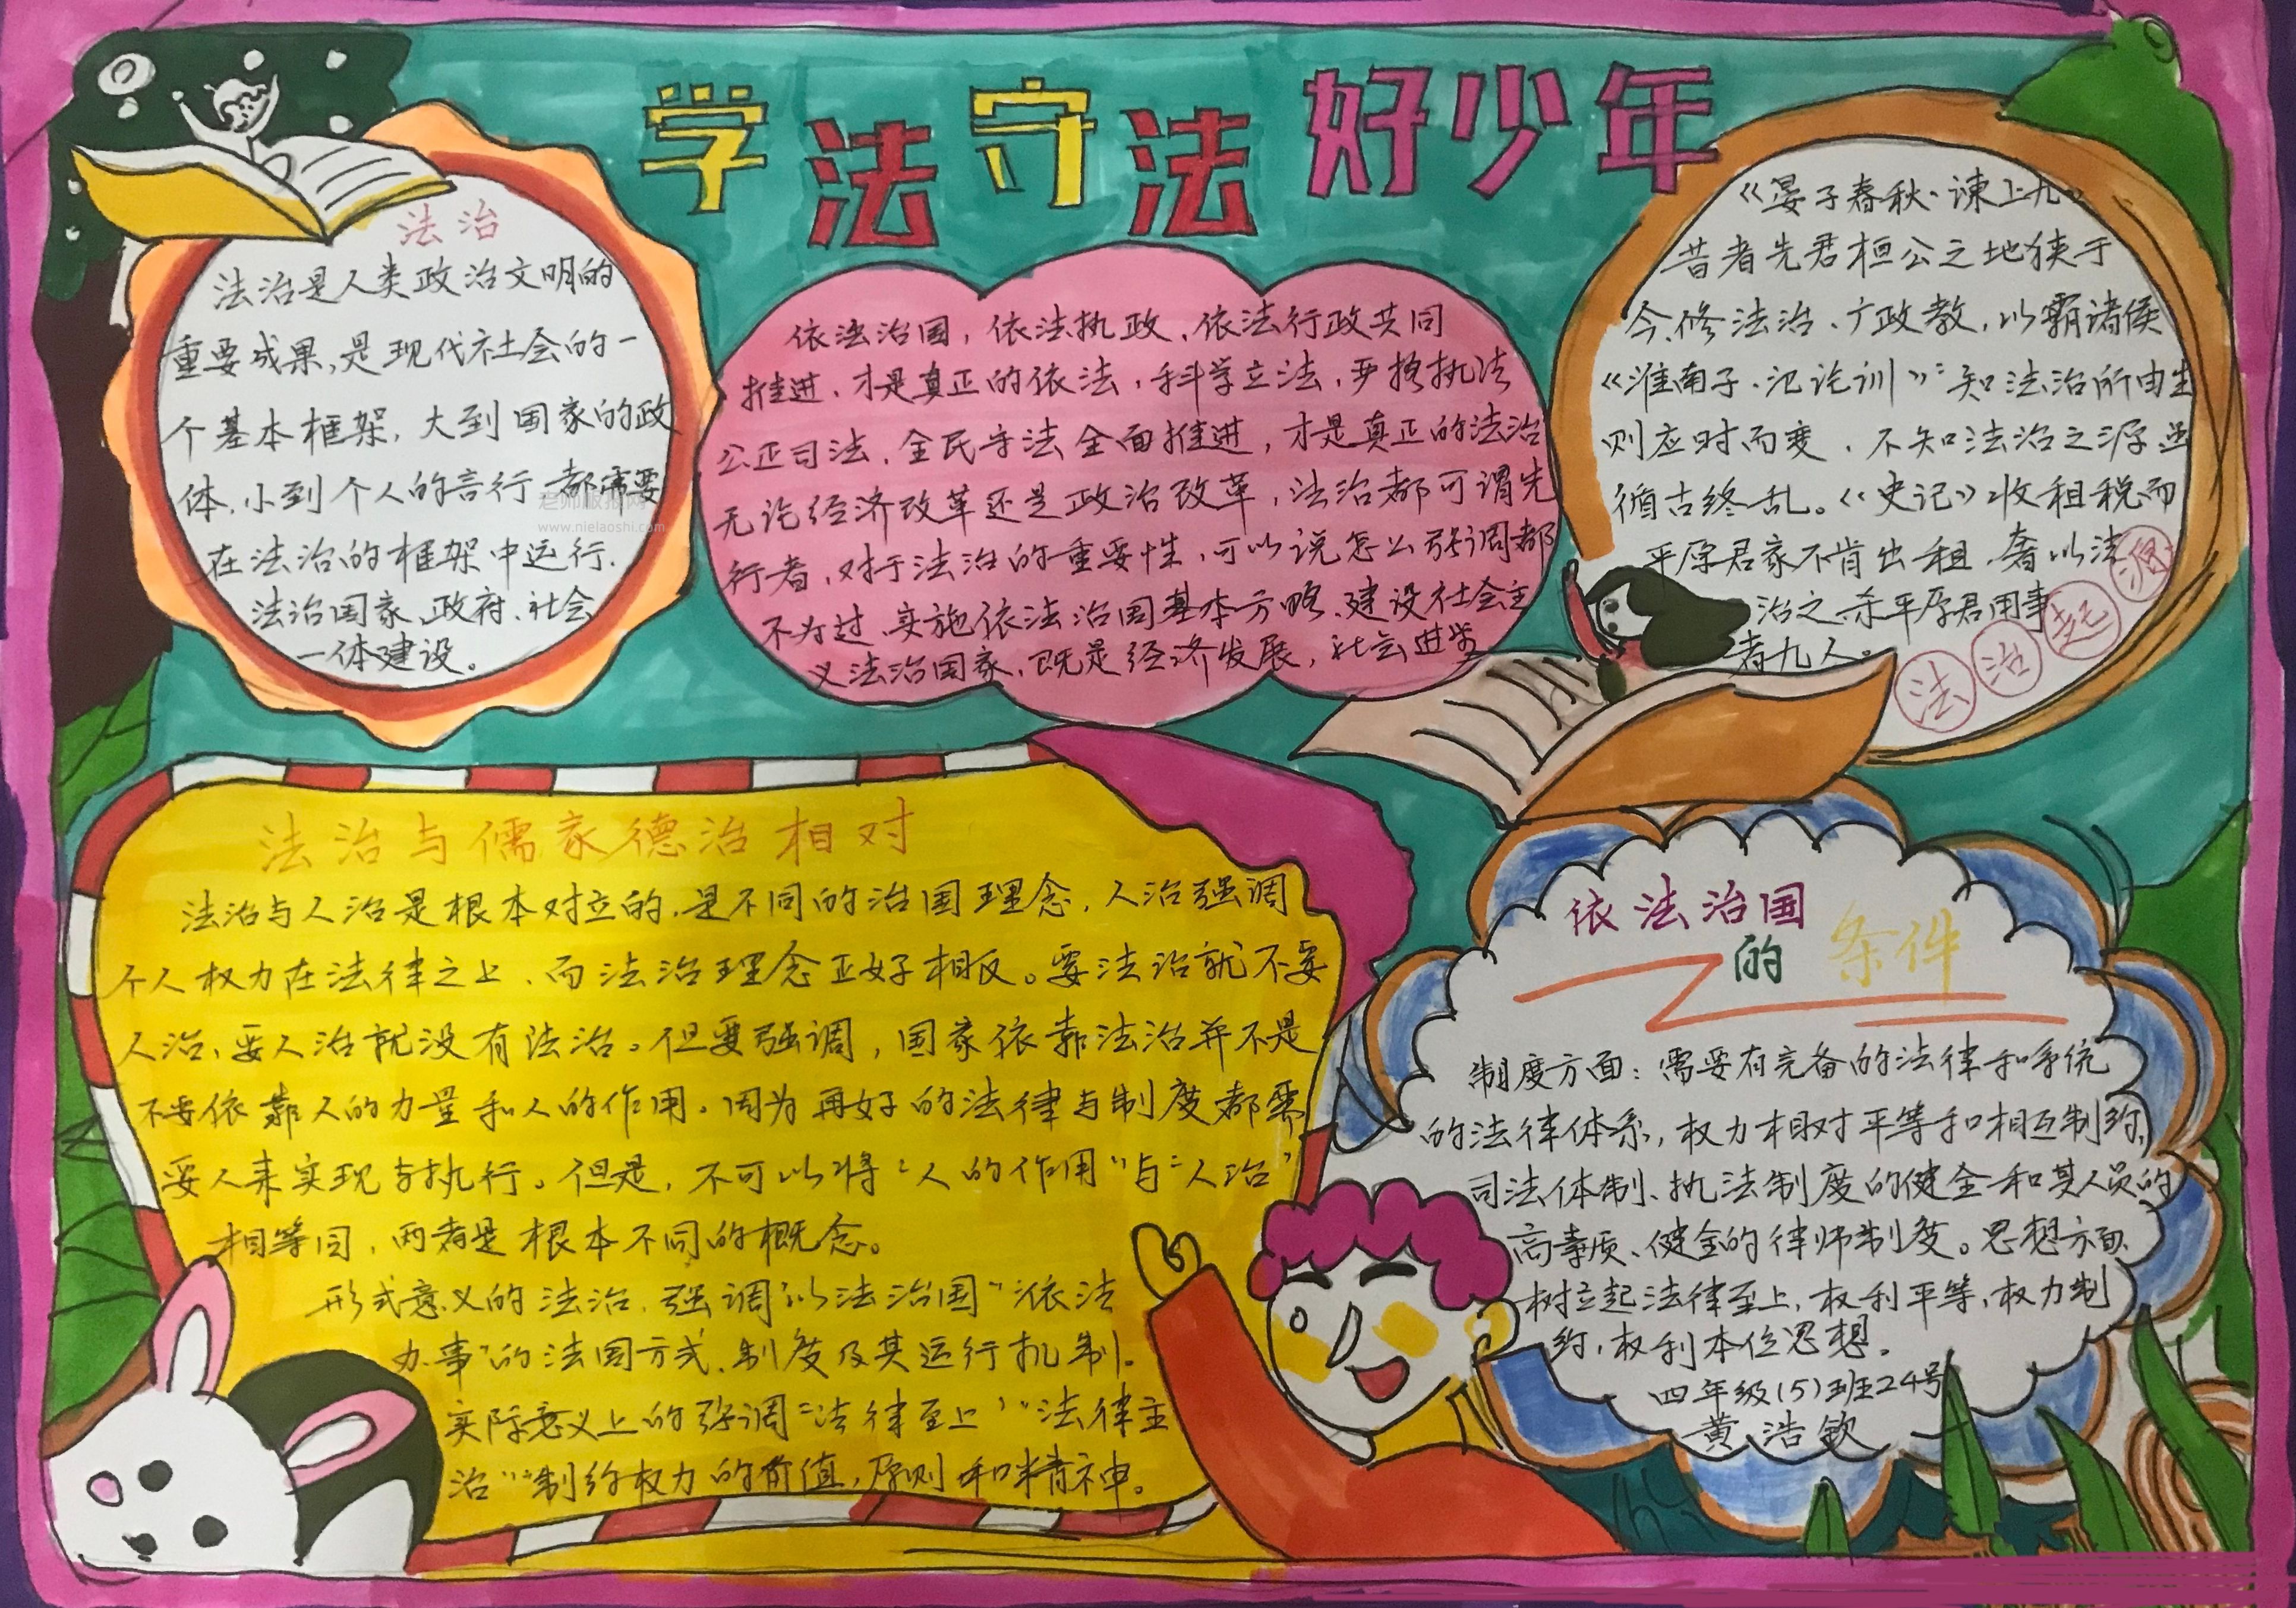 学法守法好少年
法治
法治是人类政治文明的
重要成果,是现代社会的一
个基本框架,大到国家的政
体,小到个人的言行,都需要
在法治的框架中运行.
法治国家、政府、社会
一体建设。
老师板报网
www.nielaoshi.com
依法治国,依法执政、依法行政共同
推进,才是真正的依法,科学立法,严格执法
公正司法、全民守法全面推进,才是真正的法治
无论经济改革还是政治改革,法治都可谓先
行者,对于法治的重要性,可以说怎么强调都
不为过、实施依法治国基本方略、建设社会主
义法治国家,既是经济发展,社会进步
《晏子春秋·谏上九》
昔者先君桓公之地狭于
今,修法治、广政教,以霸诸侯
《淮南子·氾论训》:知法治所由生
则应时而变、不知法治之源虽
循古终乱。《史记》收租税而
平原君家不肯出租,奢以法
治之,杀平原君用事
者九人。
法治起源
法治与儒家德治相对
法治与人治是根本对立的,是不同的治国理念,人治强调
个人权力在法律之上、而法治理念正好相反。要法治就不要
人治、要人治就没有法治。但要强调,国家依靠法治并不是
不要依靠人的力量和人的作用。因为再好的法律与制度都需
要人来实现与执行。但是,不可以将“人的作用”与“人治”
相等同,两者是根本不同的概念。
形式意义的法治,强调“以法治国”“依法
办事”的法国方式、制度及其运行机制.
实际意义上的强调“法律至上”“法律主
治”“制约权力的价值,原则和精神。
依法治国
的 条件
制度方面:需要有完备的法律和系统
的法律体系,权力相对平等和相互制约,
司法体制、执法制度的健全和其人员的
高素质、健全的律师制度。思想方面、
树立起法律至上,权利平等,权力制
约,权利本位思想.
四年级(5)班24号
黄浩钦